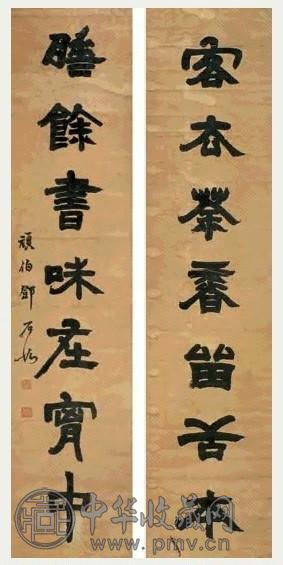 客去茶香留舌本
睡餘書味在胷中
頑伯鄧石如
中华收藏网
www.pmv.cn